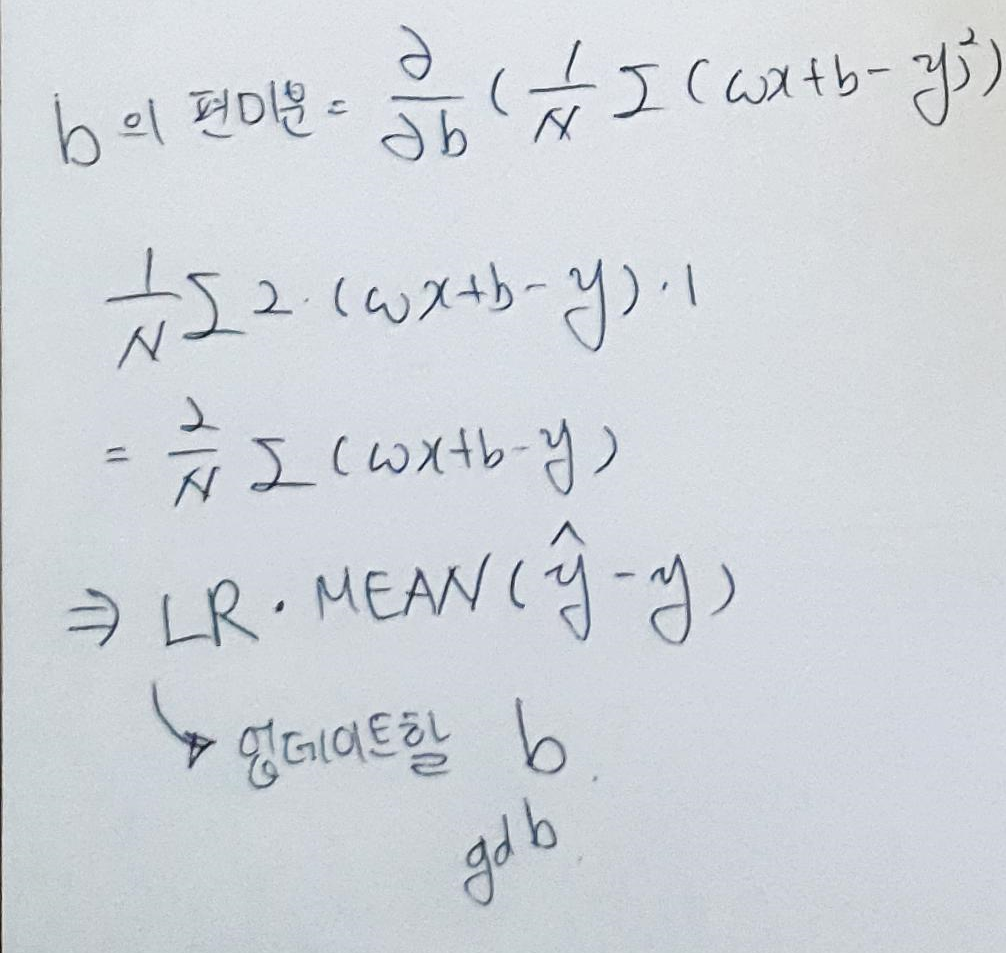 b의 편미분 = ∂/∂b ( 1/N Σ (wx+b-y)²)
1/N Σ 2·(wx+b-y)·1
= 2/N Σ (wx+b-y)
⇒ LR · MEAN(ŷ-y)
↳ 업데이트할 b.
gdb